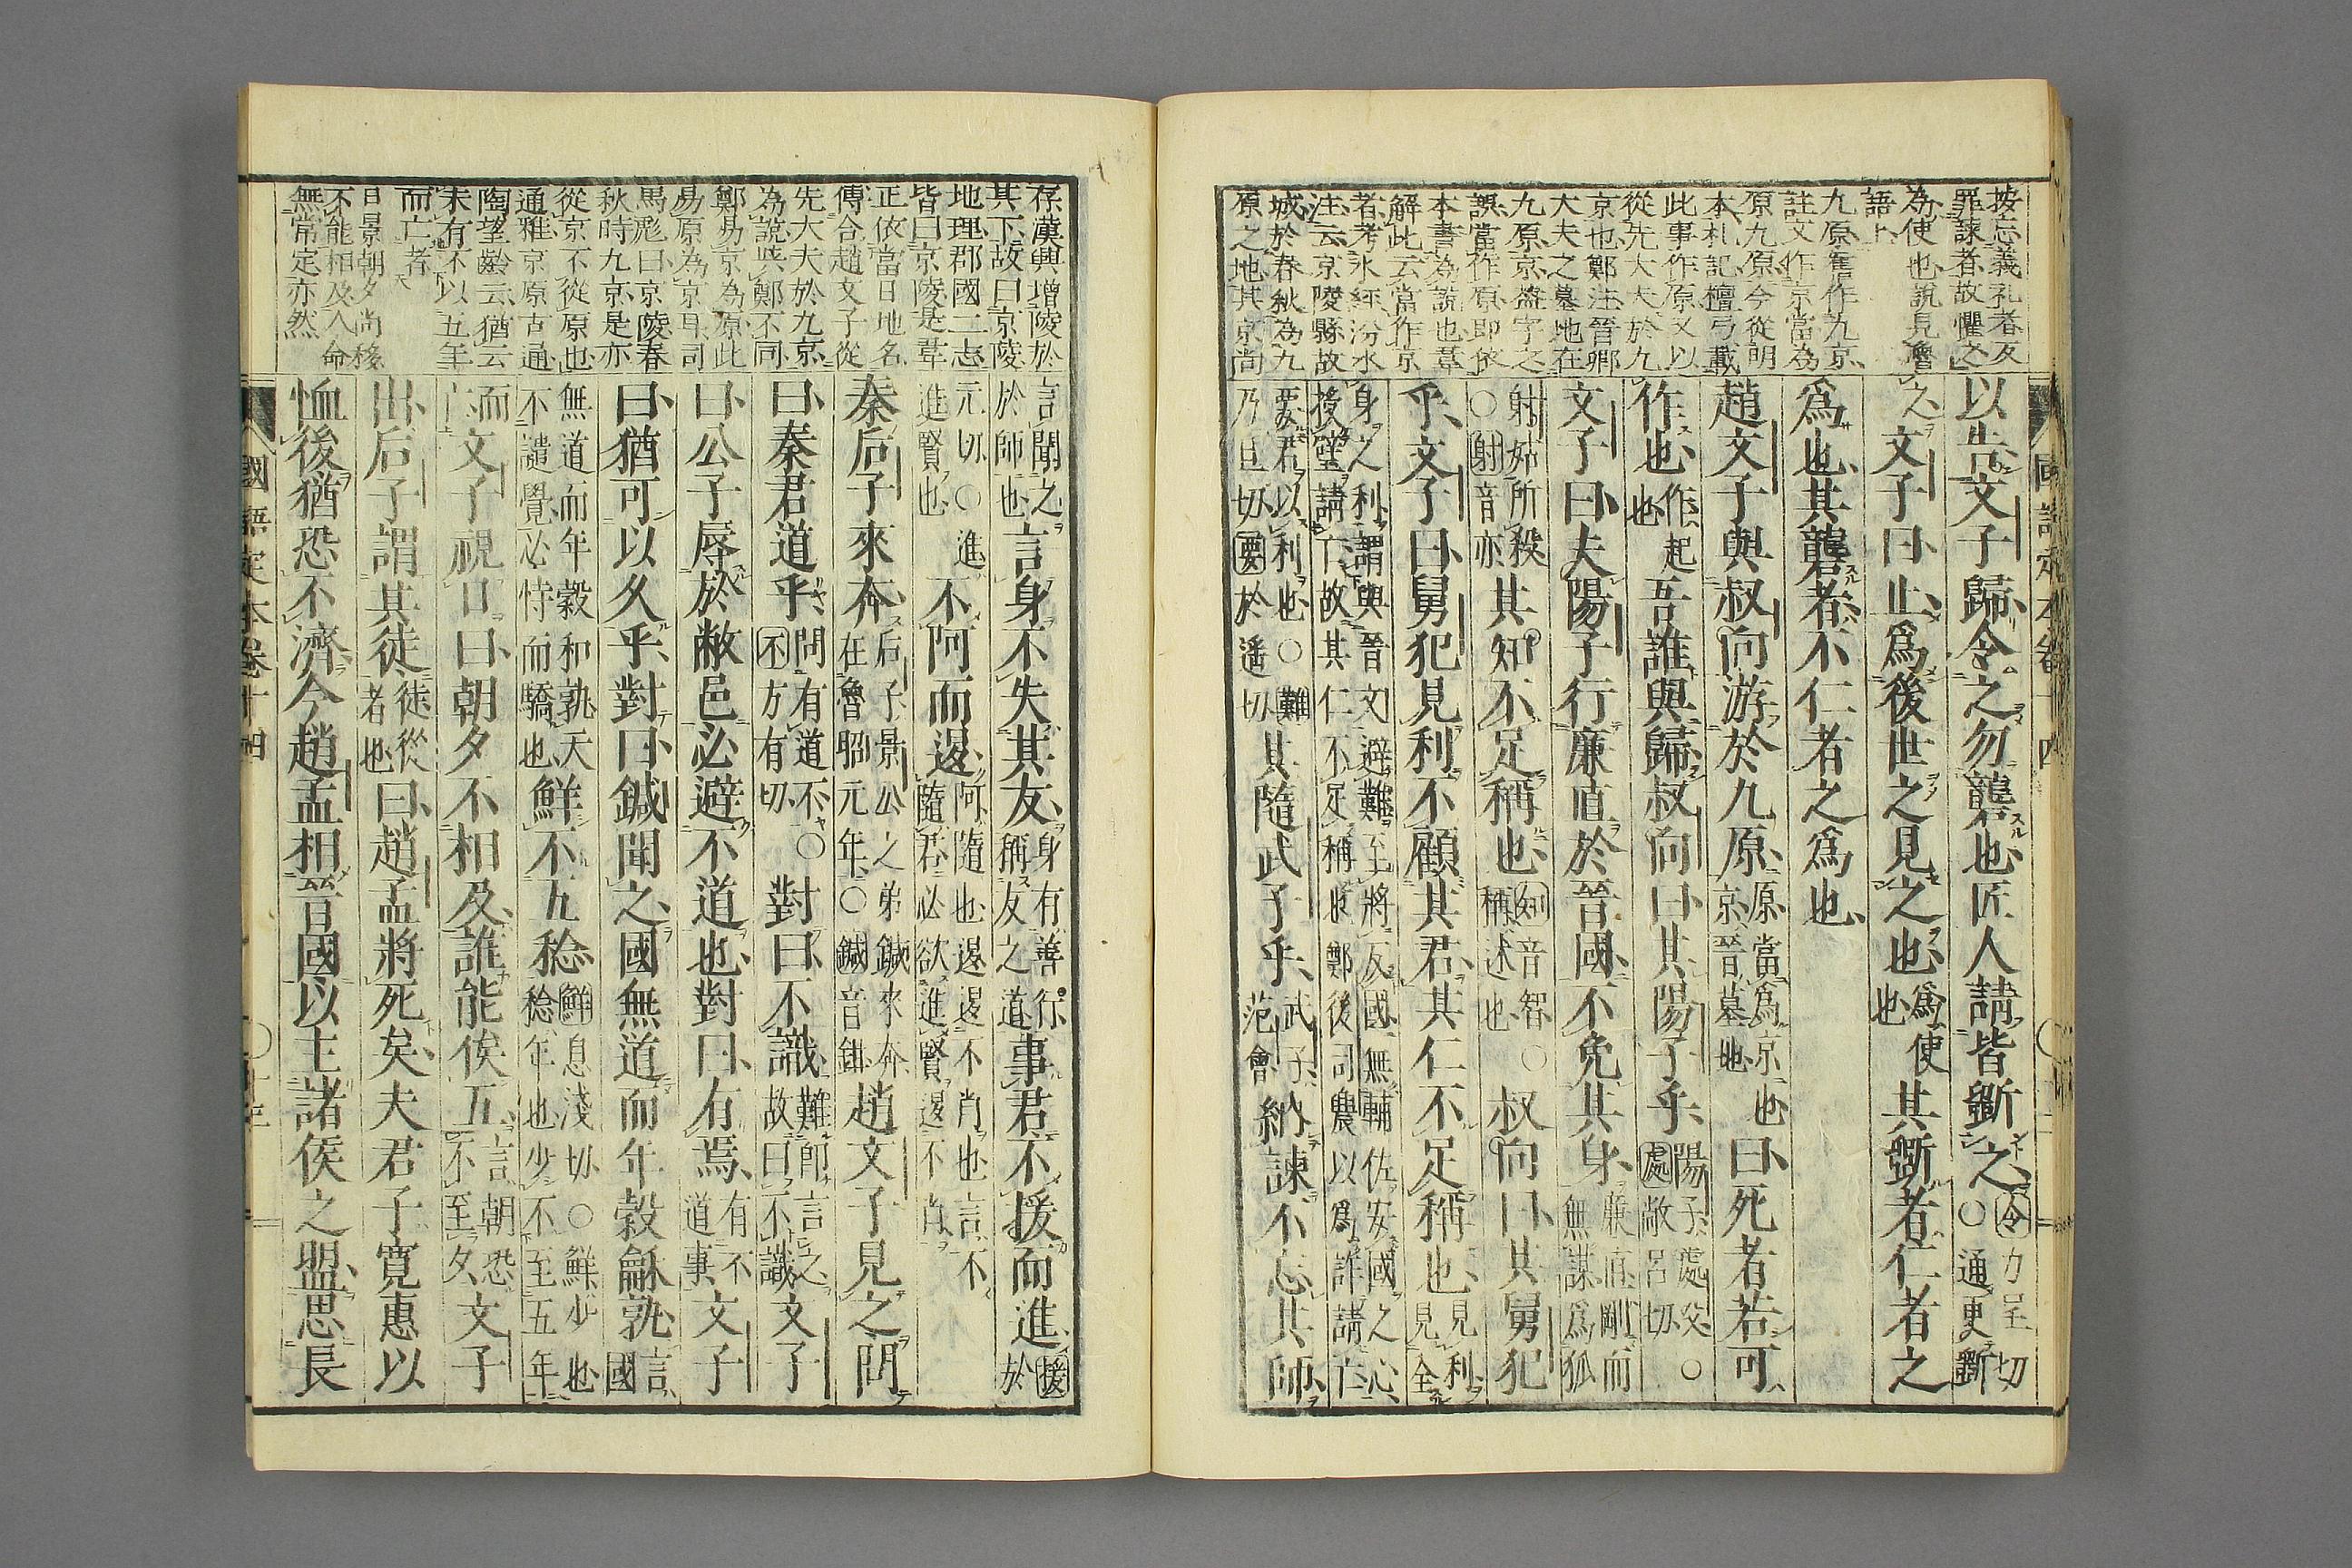 按忘義礼者友
罪諫者故懼之
為使也說見魯
語上
九原舊作九京
註文作京當為
原九原今從明
本札記檀弓載
此事作原又以
從先大夫於九
京也鄭注晉卿
大夫之墓地在
九原京盖字之
誤當作原即依
本書為說也韋
解此云當作京
者考水經汾水
注云京陵縣故
城於春秋為九
原之地其京尚
國語定本卷十四
以告文子歸令之勿礱也匠人請皆斲之令力呈切○通更斲
之文子曰止爲後世之見之也爲使也其斲者仁者之
爲也其礱者不仁者之爲也
趙文子與叔向游於九原原當爲京也京晉墓地曰死者若可
作也作起也吾誰與歸叔向曰其陽子乎陽子處父○處敞呂切
文子曰夫陽子行廉直於晉國不免其身廉直剛而無謀爲狐
射姑所殺○射音亦其知不足稱也知音智○稱述也叔向曰其舅犯
乎文子曰舅犯見利不顧其君其仁不足稱也見利見全
身之利謂與晉文避難至將反國無輔佐安國之心授璧請亡故其仁不足稱也鄭後司農以爲詐請亡
要君以利也○難乃旦切要於遙切其隨武子乎武子范會納諫不忘其師
存漢興增陵於
其下故曰京陵
地理郡國二志
皆曰京陵是韋
正依當日地名
傳合趙文子從
先大夫於九京
為說與鄭不同
鄭易京為原此
易原為京耳司
馬彪曰京陵春
秋時九京是亦
從京不從原也
通雅京原古通
陶望齡云猶云
未有不以五年
而亡者
日景朝夕尚移
不能相及人命
無常定亦然
言聞之於師也言身不失其友身有善行稱友之道事君不援而進援於
元切○進進賢也不阿而退阿隨也退退不肖也言不隨君必欲進賢退不肖
秦后子來奔后子景公之弟鍼來奔在魯昭元年○鍼音鉗趙文子見之問
曰秦君道乎問有道不○不方有切對曰不識難即言之故曰不識文子
曰公子辱於敝邑必避不道也對曰有焉有不道事文子
曰猶可以久乎對曰鍼聞之國無道而年穀龢孰言國
無道而年穀和孰天不譴覺必恃而驕也鮮不五稔鮮息淺切○鮮少也稔年也少不至五年
而亡文子視日曰朝夕不相及誰能俟五言朝恐不至夕文子
出后子謂其徒徒從者也曰趙孟將死矣夫君子寬惠以
恤後猶恐不濟今趙孟相晉國以主諸侯之盟思長
國語定本卷十四